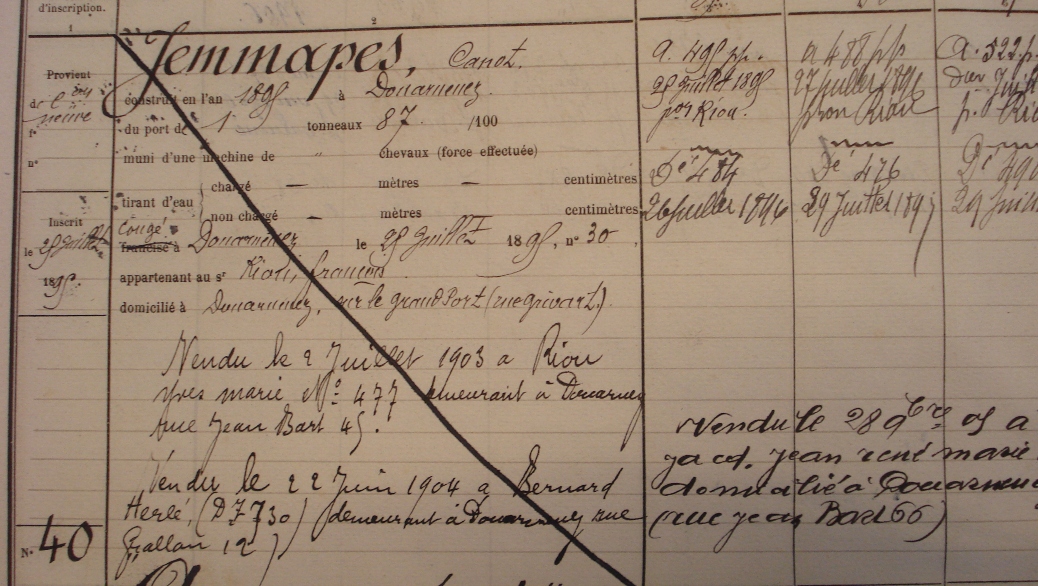 d'inscription.
1
2
Provient
de neuve
f°
n°
Inscrit
le 29 juillet
1895
N° 40
Jemmapes, Canot.
construit en l'an 1895 à Douarnenez
du port de 1 tonneaux 87 /100
muni d'une machine de " chevaux (force effectuée)
tirant d'eau
chargé — mètres — centimètres
non chargé — mètres centimètres
Congé
francisé à Douarnenez le 29 Juillet 1895, n° 30,
appartenant au sr François
domicilié à Douarnenez, sur le grand Port (rue grivart.)
Vendu le 2 Juillet 1903 a Riou
Yves marie N° 477 demeurant à Douarnenez
rue Jean Bart 45.
Vendu le 22 Juin 1904 a Bernard
Herlé, (DZ 730) demeurant à Douarnenez rue
12)
a. 495 pp.
29 Juillet 1895
por Riou.
Dé 484
26 Juillet 1896
a 488 pp
27 Juillet 1896
pron Riou
Dé 476
29 Juillet 1897
a. 522 p.
p.
Dé 490
29 Juillet
Vendu le 28 9bre 05 a
jean rené marie
domicilié à Douarnenez
(rue jean Bart 66)